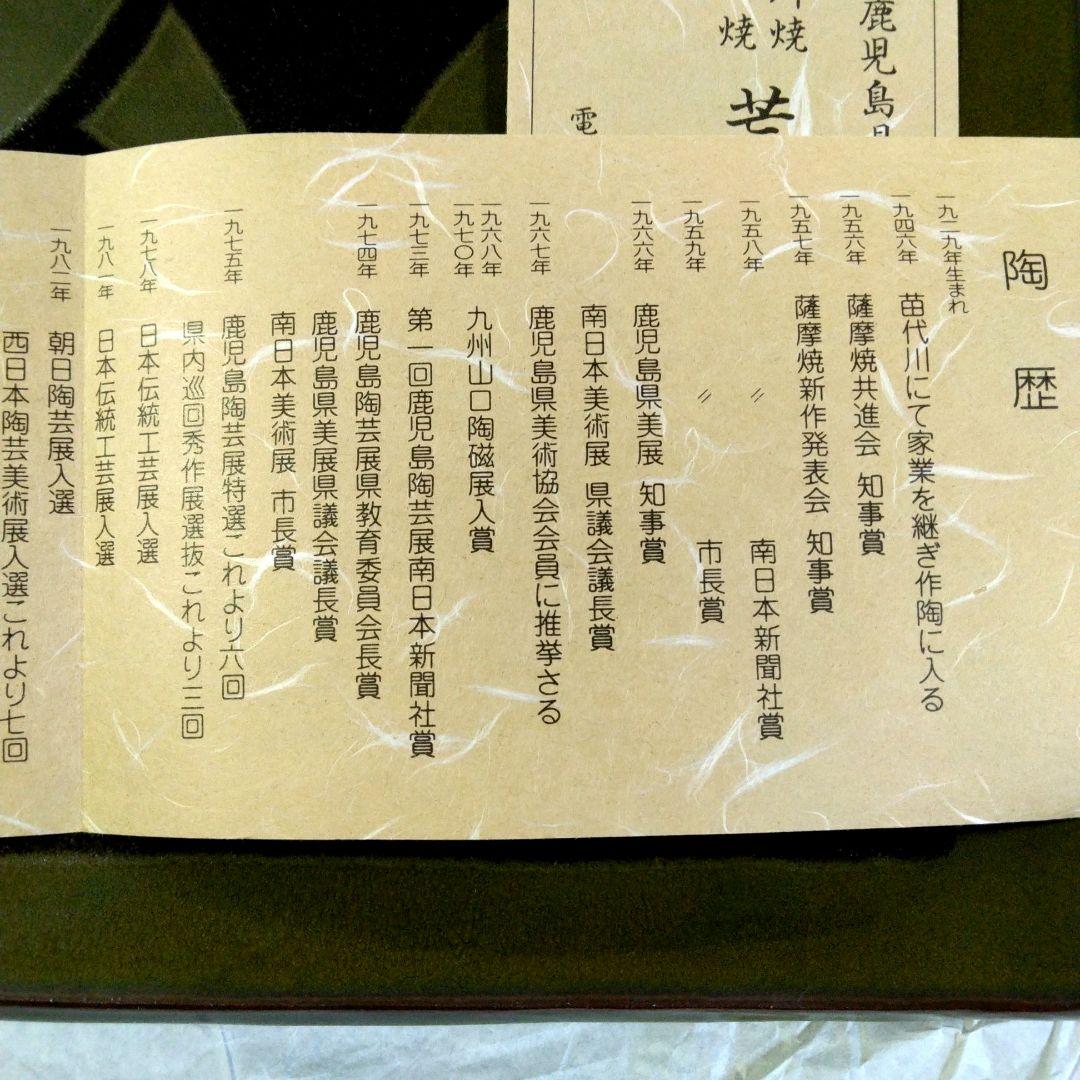 鹿児島県
焼
焼
芒
電
陶歴
一九二九年生まれ
一九四六年 苗代川にて家業を継ぎ作陶に入る
一九五六年 薩摩焼共進会 知事賞
一九五七年 薩摩焼新作発表会 知事賞
一九五八年 〃 南日本新聞社賞
一九五九年 〃 市長賞
一九六六年 鹿児島県美展 知事賞
南日本美術展 県議会議長賞
一九六七年 鹿児島県美術協会会員に推挙さる
一九六八年
一九七〇年
九州山口陶磁展入賞
一九七三年 第一回鹿児島陶芸展南日本新聞社賞
一九七四年 鹿児島陶芸展県教育委員会長賞
鹿児島県美展県議会議長賞
南日本美術展 市長賞
一九七五年 鹿児島陶芸展特選これより六回
県内巡回秀作展選抜これより三回
一九七八年 日本伝統工芸展入選
一九八一年 日本伝統工芸展入選
一九八二年 朝日陶芸展入選
西日本陶芸美術展入選これより七回